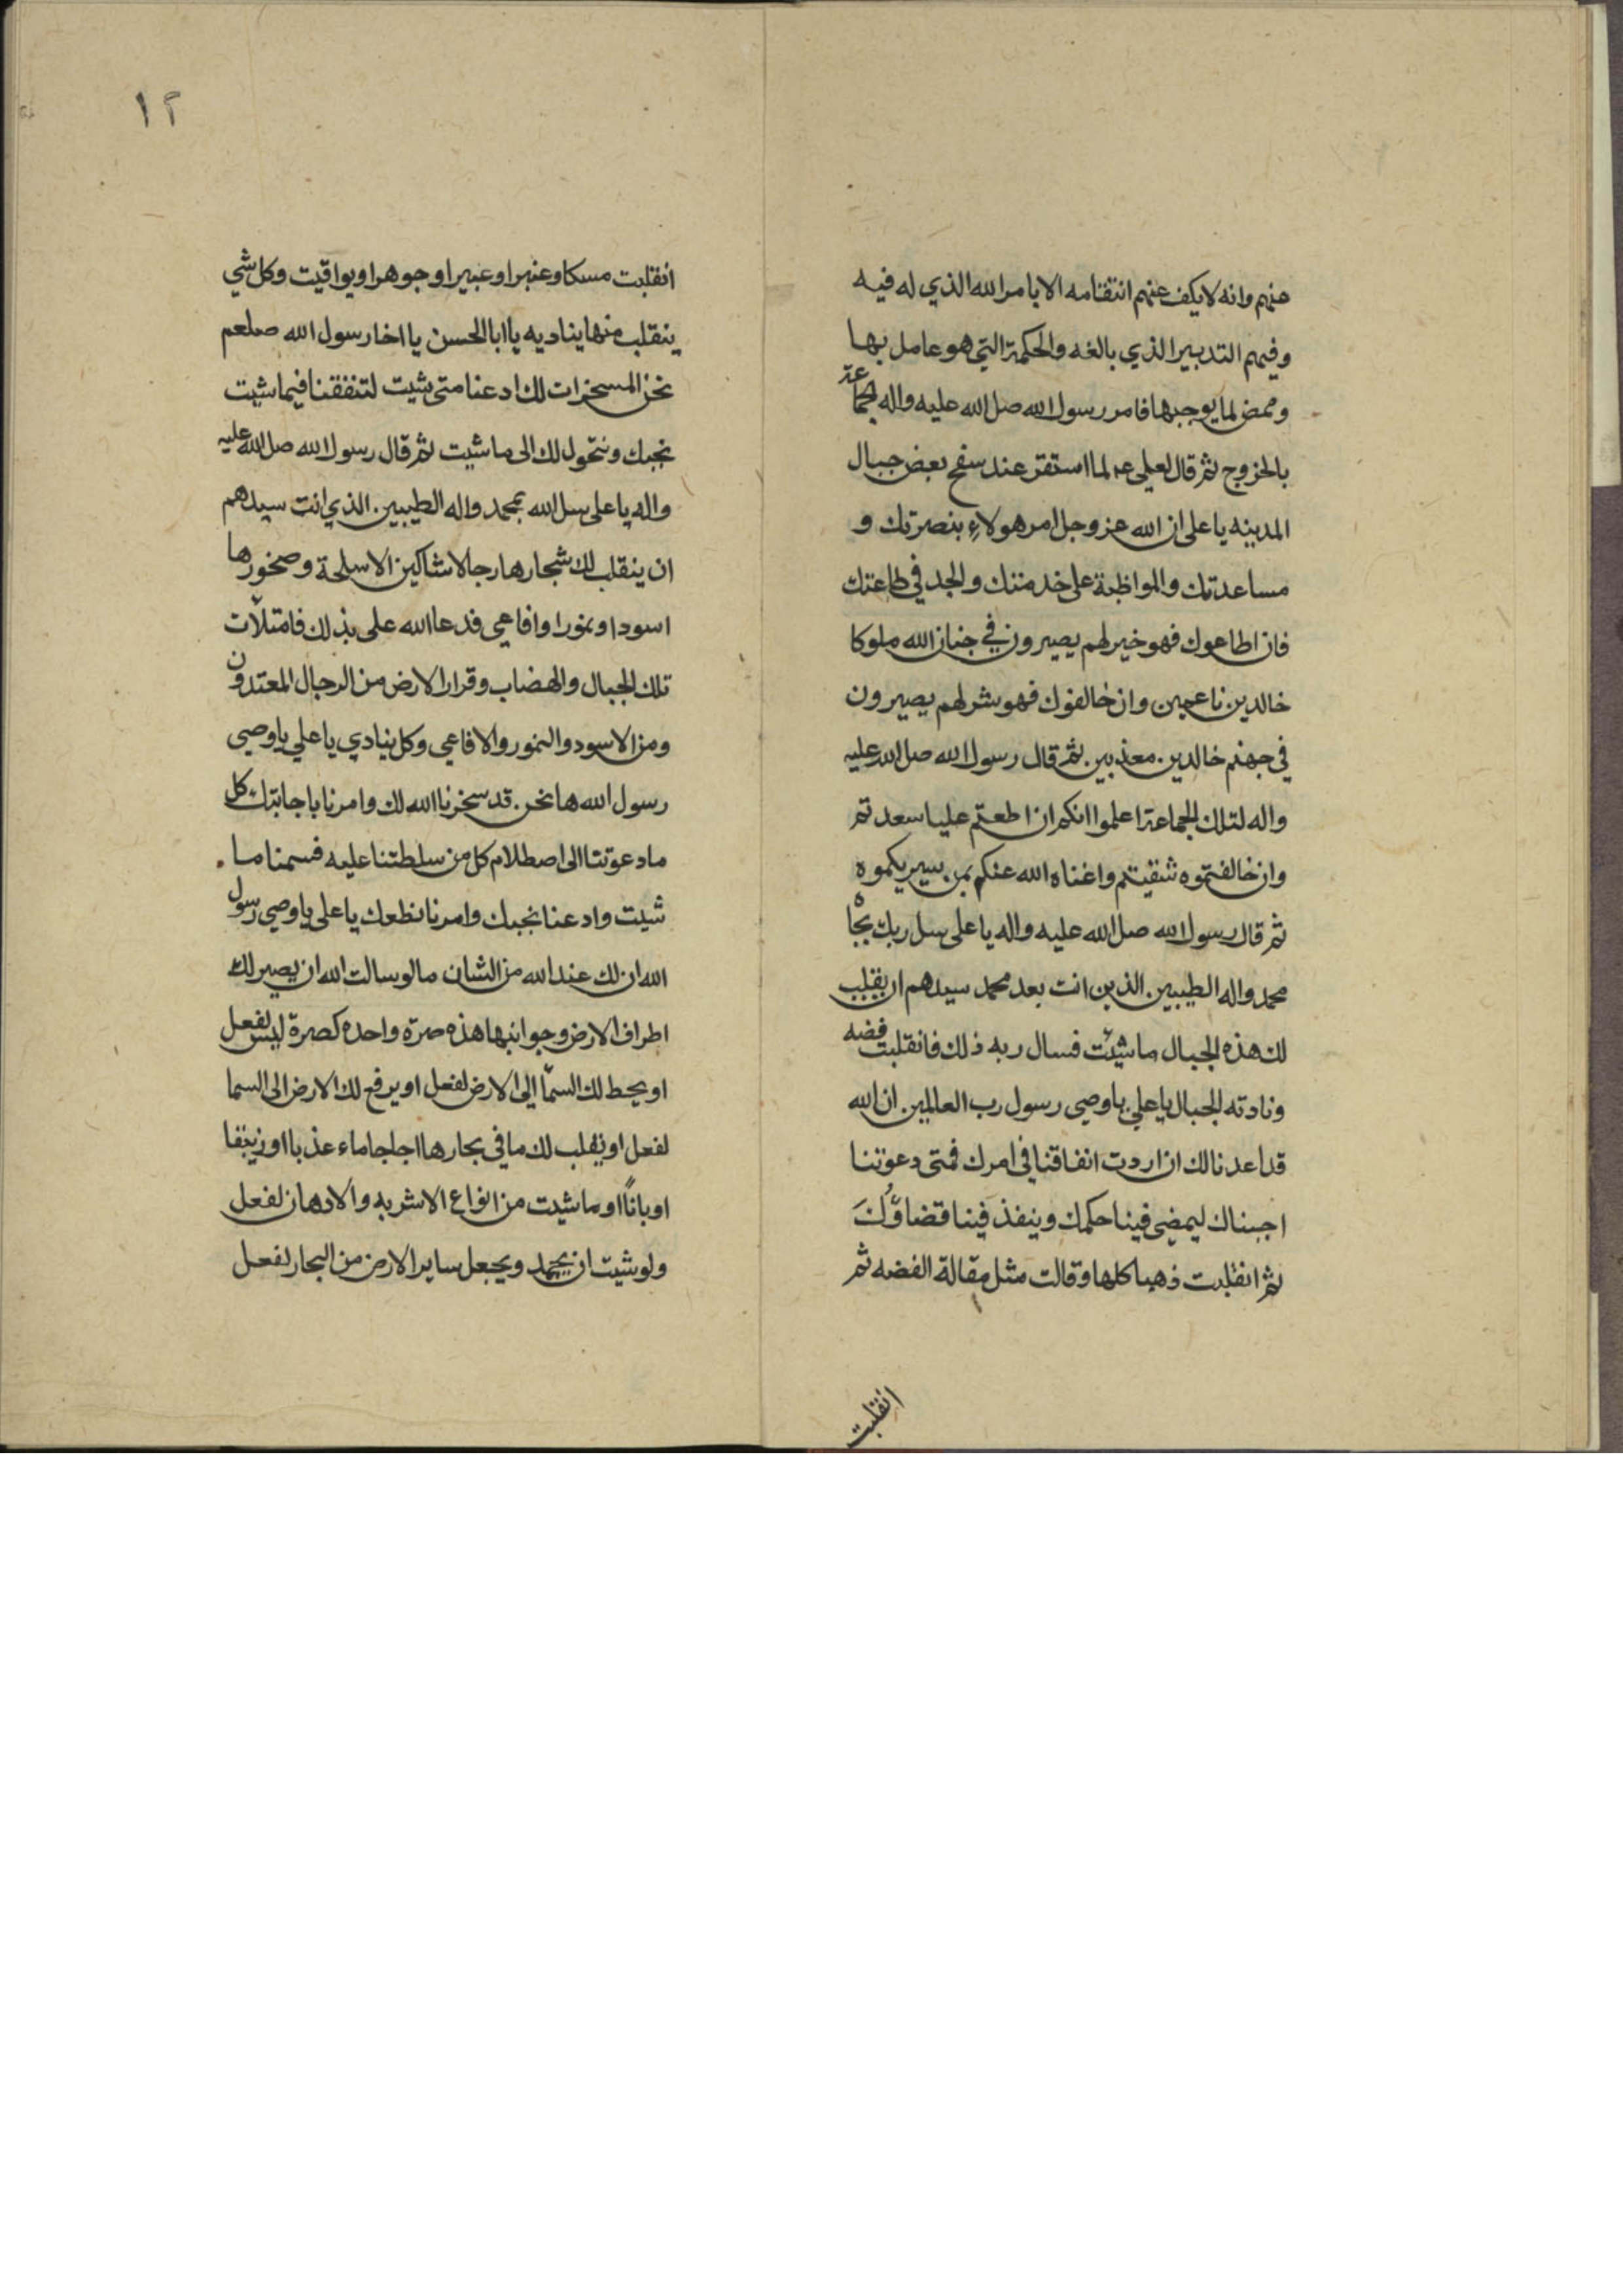 عنهم وانه لا يكف عنهم انتقامه الا بامر الله الذي له فيه
وفيهم التدبير الذي بالغه والحكمة التي هو عامل بها
وممض لما يوجبها فامر رسول الله صل الله عليه واله الجماعة
بالخروج ثم قال لعلي عم لما استقر عند سفح بعض جبال
المدينه يا علي ان الله عز وجل امر هولاءِ بنصرتك و
مساعدتك والمواظبة على خدمتك والجد في طاعتك
فان اطاعوك فهو خير لهم يصيرون في جنان الله ملوكا
خالدين ناعمين وان خالفوك فهو شر لهم يصيرون
في جهنم خالدين معذبين ثم قال رسول الله صل الله عليه
واله لتلك الجماعة اعلموا انكم ان اطعتم عليا سعدتم
وان خالفتموه شقيتم واغناه الله عنكم بمن سيريكموه
ثم قال رسول الله صل الله عليه واله يا علي سل ربك بجاه
محمد واله الطيبين الذين انت بعد محمد سيدهم ان يقلب
لك هذه الجبال ما شيت فسال ربه ذلك فانقلبت فضه
ونادته الجبال يا علي يا وصي رسول رب العالمين ان الله
قد اعدنا لك ان اردت انفاقنا في امرك فمتى دعوتنا
اجبناك ليمضي فينا حكمك وينفذ فينا قضاؤُكَ
ثم انقلبت ذهبا كلها وقالت مثل مقالة الفضه ثم
انقلبت
١٢
انقلبت مسكا وعنبرا وعبيرا وجوهرا ويواقيت وكل شي
ينقلب منها يناديه يا ابا الحسن يا اخا رسول الله صلعم
نحن المسخرات لك ادعنا متى شيت لتنفقنا فيما شيت
نجبك ونتحول لك الى ما شيت ثم قال رسول الله صل الله عليه
واله يا علي سل الله بمحمد واله الطيبين الذي انت سيدهم
ان ينقلب لك شجارها رجالا شاكين الاسلحة وصخورها
اسودا ونمورا وافاعي فدعا الله علي بذلك فامتلأت
تلك الجبال والهضاب وقرار الارض من الرجال المعتدون
ومن الاسود والنمور والافاعي وكل ينادي يا علي يا وصي
رسول الله ها نحن قد سخرنا الله لك وامرنا باجابتك كل
ما دعوتنا الى اصطلام كل من سلطتنا عليه فسمنا ما
شيت وادعنا نجبك وامرنا نطعك يا علي يا وصي رسول
الله ان لك عند الله من الشان ما لو سالت الله ان يصير لك
اطراف الارض وجوانبها هذه صرّة واحده كصرة ليس لفعل
او يحط لك السمآ الي الارض لفعل او يرفع لك الارض الى السما
لفعل او يقلب لك ما في بحارها اجاجا ماء عذبا او زيبقا
او باناً او ما شيت من انواع الاشربه والادهان لفعل
ولو شيت ان يجمد ويجعل ساير الارض من البحار لفعل